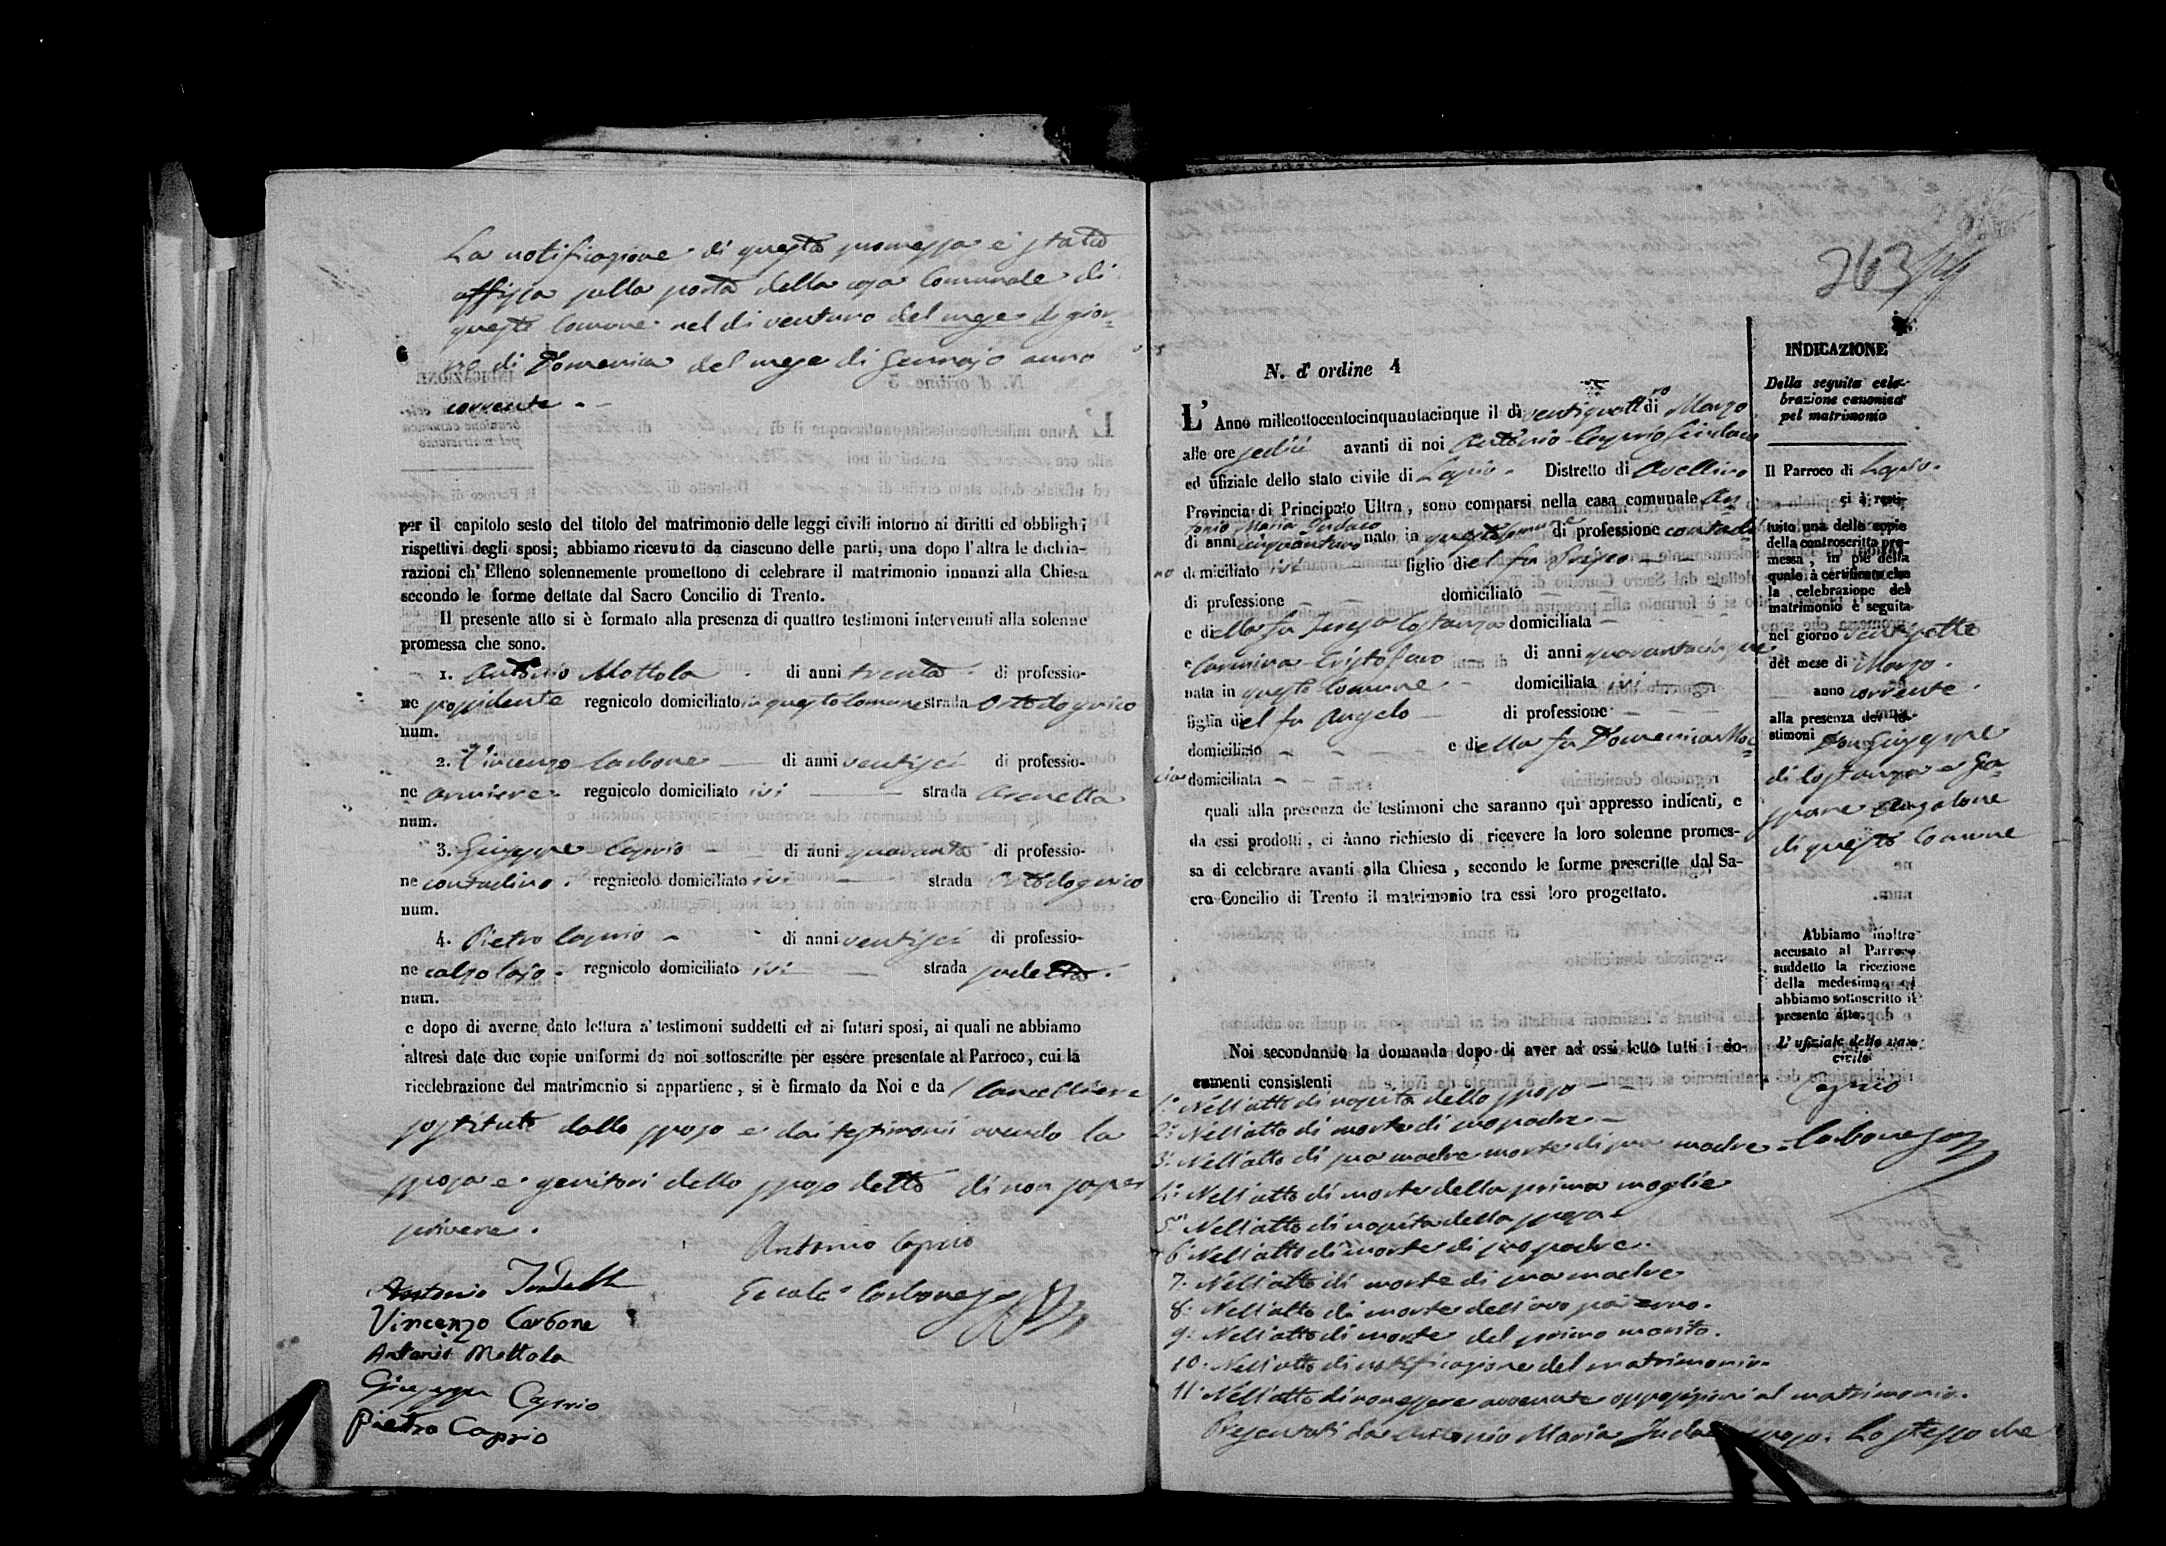 La notificazione di questa promessa è stata
affissa sulla porta della casa Comunale di
questo Comune nel di ventuno del mese di gior=
no di Domenica del mese di Gennajo anno
corrente.
per il capitolo sesto del titolo del matrimonio delle leggi civili intorno ai diritti ed obblighi
rispettivi degli sposi; abbiamo ricevuto da ciascuno delle parti, una dopo l'altra le dichia-
razioni ch'Elleno solennemente promettono di celebrare il matrimonio innanzi alla Chiesa
secondo le forme dettate dal Sacro Concilio di Trento.
Il presente atto si è formato alla presenza di quattro testimoni intervenuti alla solenne
promessa che sono.
1. Antonio Mottola di anni trenta di professio-
ne possidente regnicolo domiciliato in questo Comune strada
num.
2. Vincenzo Carbone di anni ventisei di professio-
ne armiere regnicolo domiciliato ivi strada Arenella
num.
3. Giuseppe Caprio di anni quaranta di professio-
ne contadino regnicolo domiciliato ivi strada
num.
4. Pietro Caprio di anni ventisei di professio-
ne calzolajo regnicolo domiciliato ivi strada
num.
e dopo di averne dato lettura a' testimoni suddetti ed ai futuri sposi, ai quali ne abbiamo
altresì date due copie uniformi da noi sottoscritte per essere presentate al Parroco, cui la
ricelebrazione del matrimonio si appartiene, si è firmato da Noi e da Cancelliere
sostituto dallo sposo e dai testimoni avendo la
sposa e genitori dello sposo detto di non saper
scrivere.
Antonio Caprio
Antonio
Carbone
Vincenzo Carbone
Antonio Mottola
Giuseppe Caprio
Pietro Caprio
263
N. d'ordine 4
L'Anno millottocentocinquantacinque il di ventiquattro di Marzo
alle ore sedici avanti di noi Antonio Caprio Sindaco
ed ufiziale dello stato civile di Lapio. Distretto di Avellino
Provincia di Principato Ultra, sono comparsi nella casa comunale An=
tonio Maria
di anni cinquantuno nato in questo Comune di professione contadi
no domiciliato ivi figlio del fu
di professione domiciliato
e della fu Teresa Costanza domiciliata
e Carmina Cristofaro di anni quarantacinque
nata in questo Comune domiciliata ivi
figlia del fu Angelo di professione
domiciliato e della fu Domenica Moc=
cia domiciliata
quali alla presenza de' testimoni che saranno quì appresso indicati, e
da essi prodotti, ci ànno richiesto di ricevere la loro solenne promes-
sa di celebrare avanti alla Chiesa, secondo le forme prescritte dal Sa-
cro Concilio di Trento il matrimonio tra essi loro progettato.
Noi secondando la domanda dopo di aver ad essi letto tutti i do-
cumenti consistenti
1. Nell'atto di nascita dello sposo
2. Nell'atto di morte di suo padre
3. Nell'atto di sua madre morte di sua madre
4. Nell'atto di morte della prima moglie
5. Nell'atto di nascita della sposa
6. Nell'atto di morte di suo padre.
7. Nell'atto di morte di sua madre
8. Nell'atto di morte dell'avo paterno.
9. Nell'atto di morte del primo marito.
10. Nell'atto di notificazione del matrimonio
11. Nell'atto di non essere avvenute opposizioni al matrimonio.
Presentati da Antonio Maria sposo. Lo stesso che
INDICAZIONE
Della seguita cele-
brazione canonica
pel matrimonio
Il Parroco di Lapio.
ci à resti-
tuito una delle copie
della controscritta pro-
messa, in piè della
quale à certificato che
la celebrazione del
matrimonio è seguita
nel giorno ventisette
del mese di Marzo.
anno corrente.
alla presenza de' te-
stimoni Don Giuseppe
di Costanza e Ga=
di questo Comune
Abbiamo inoltre
accusato al Parroco
suddetto la ricezione
della medesima, ed
abbiamo sottoscritto il
presente atto.
L'ufiziale dello stato
civile
Caprio
Carbone